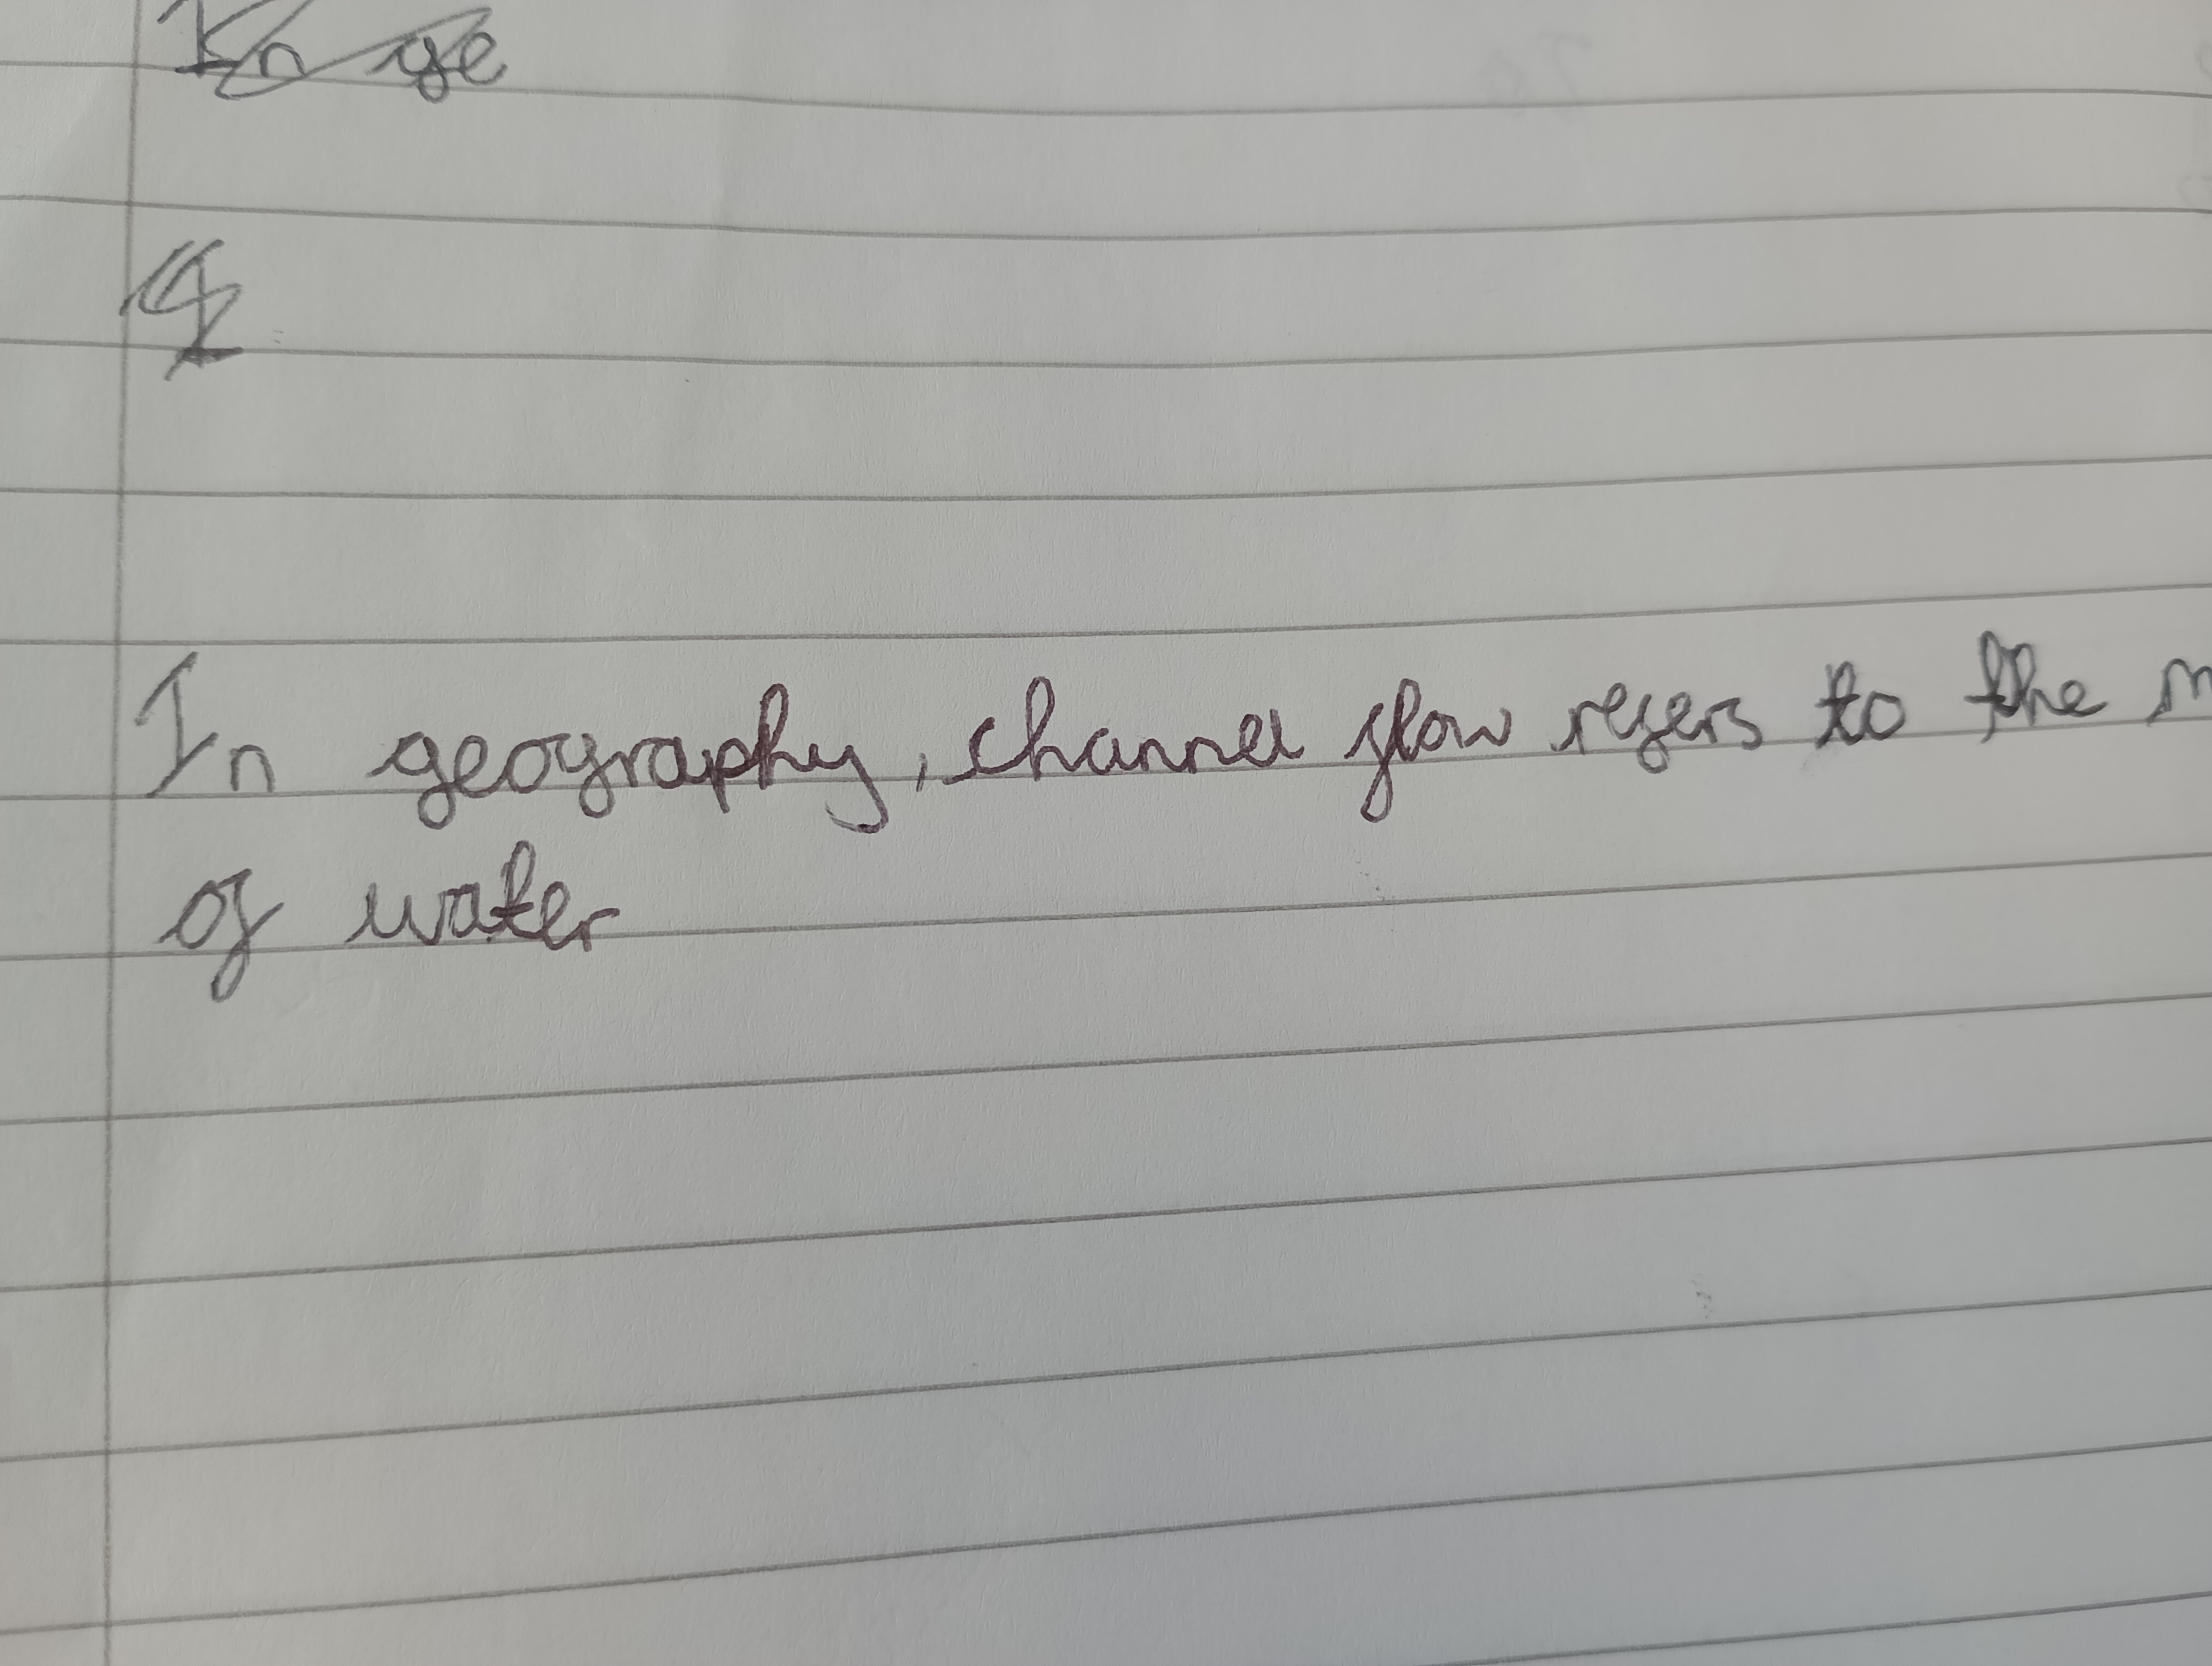 In ge
I
In geography, channel flow refers to the m
of water